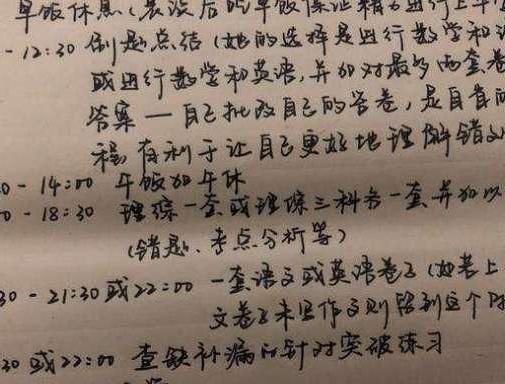 早饭休息(晨读后的早饭保证精力进行上午
- 12:30 刷题总结(她的选择是进行数学和
或进行数学和英语,并加对最多两套卷
答案 — 自己批改自己的答卷,是自省的
程,有利于让自己更好地理解错
0 - 14:00 午饭加午休
0 - 18:30 理综一套或理综三科各一套并加以
(错题、考点分析等)
30 - 21:30 或 22:00 一套语文或英语卷子(如若上
文卷子未写作文则留到这个时
30 或 22:00 查缺补漏的针对突破练习